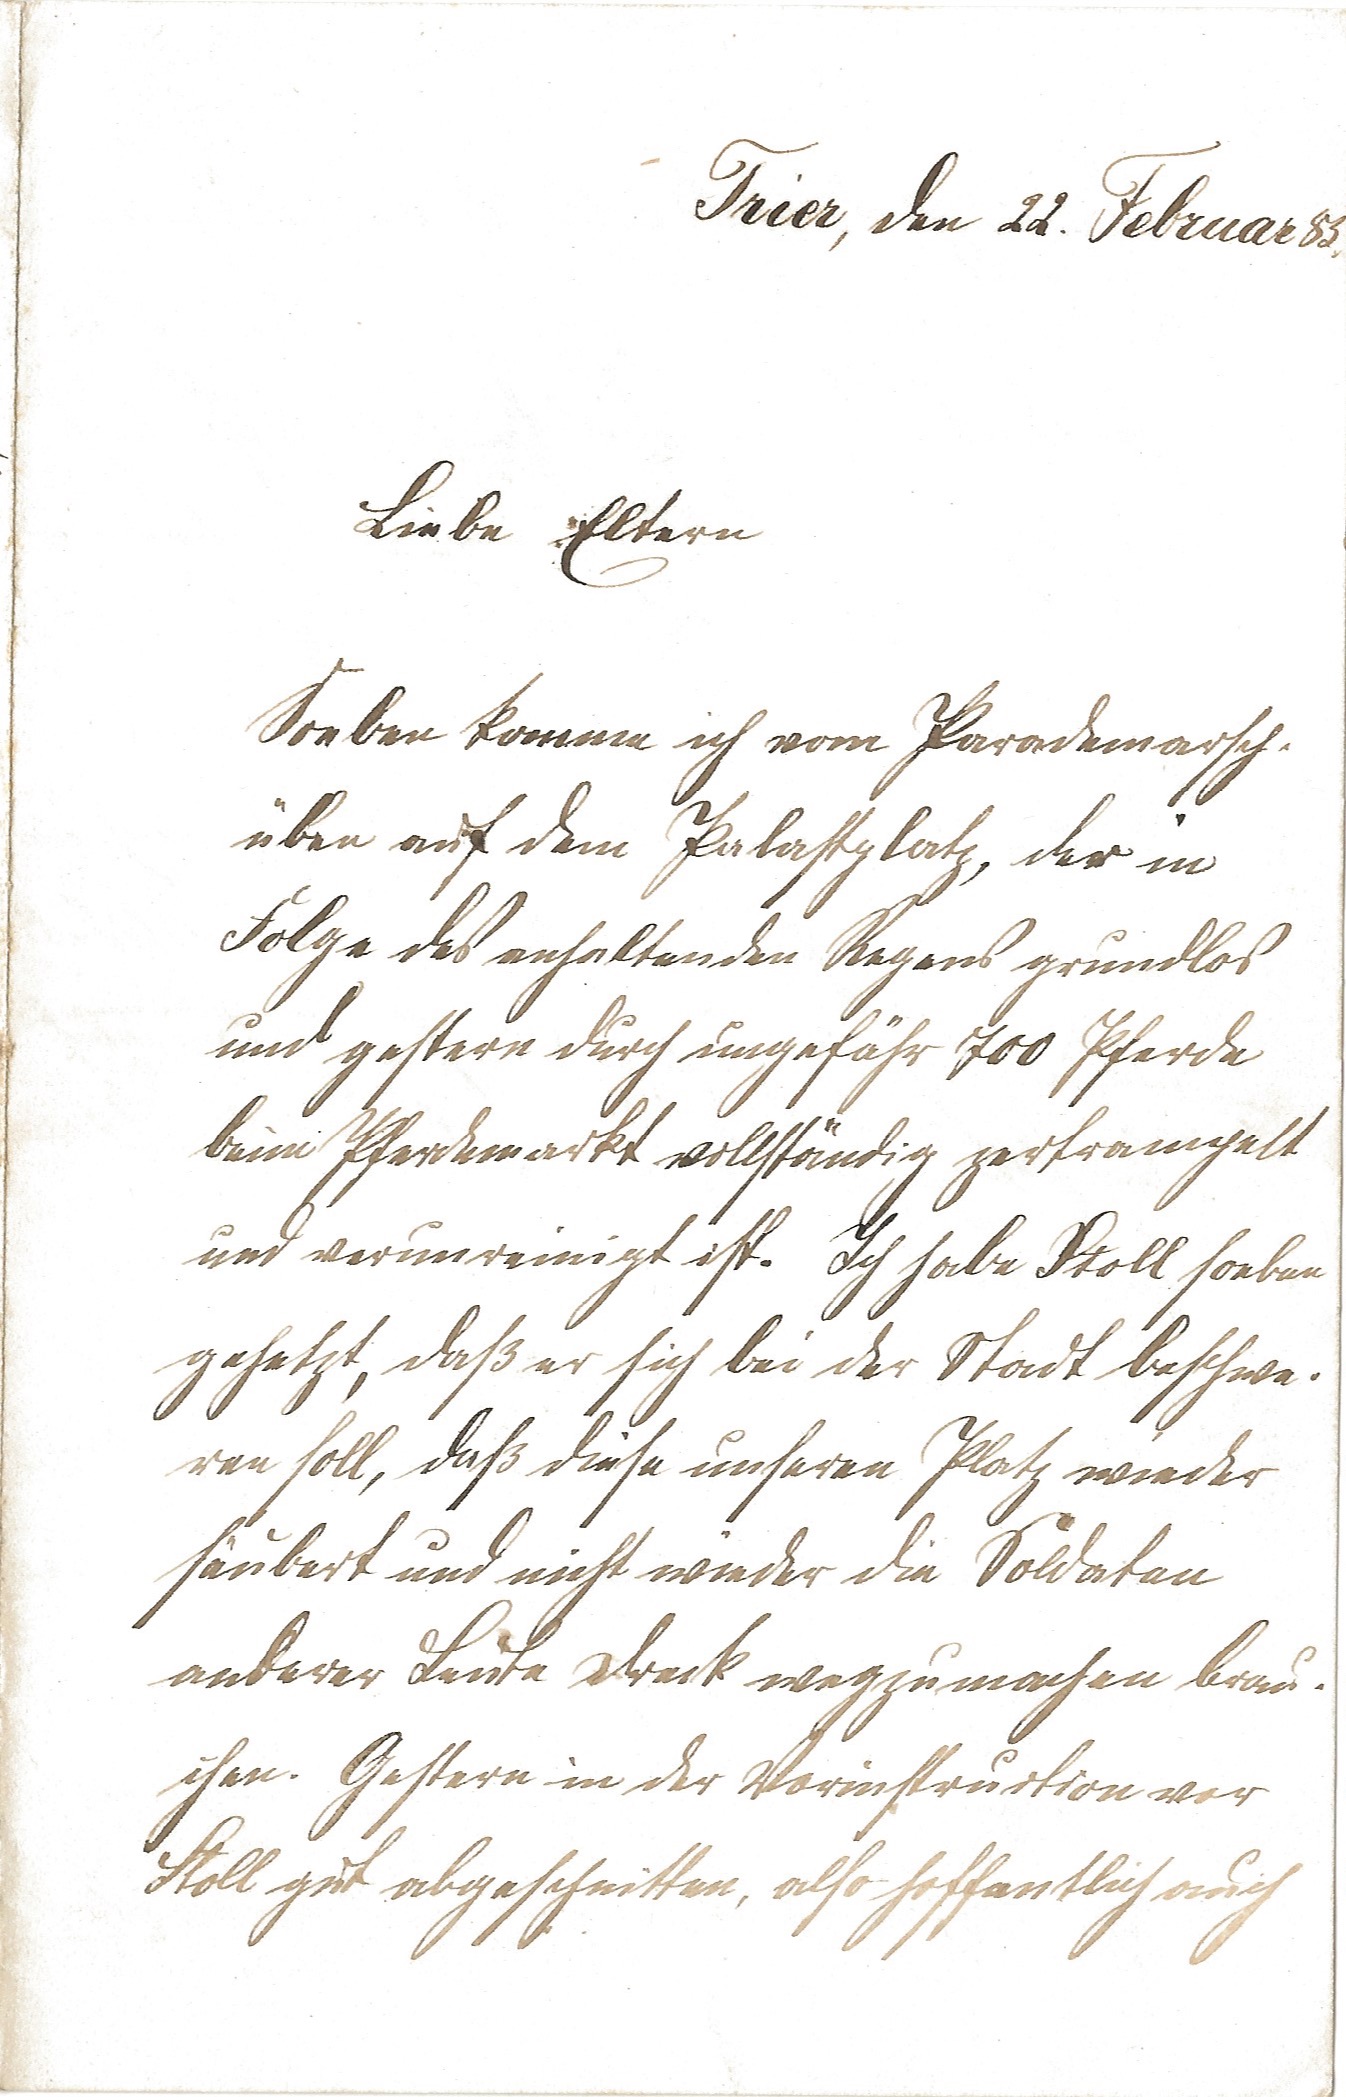 Trier, den 22. Februar 83.
Liebe Eltern
Soeben komme ich vom Parademarsch-
üben auf dem Palastplatz, der in
Folge des anhaltenden Regens grundlos
und gestern durch ungefähr 700 Pferde
beim Pferdemarkt vollständig zertrampelt
und verunreinigt ist. Ich habe Stoll soeben
gehetzt, daß er sich bei der Stadt beschwe-
ren soll, daß diese unseren Platz wieder
säubert und nicht wieder die Soldaten
anderer Leute Dreck wegzumachen brau-
chen. Gestern in der Vorinstruction vor
Stoll gut abgeschnitten, also hoffentlich auch